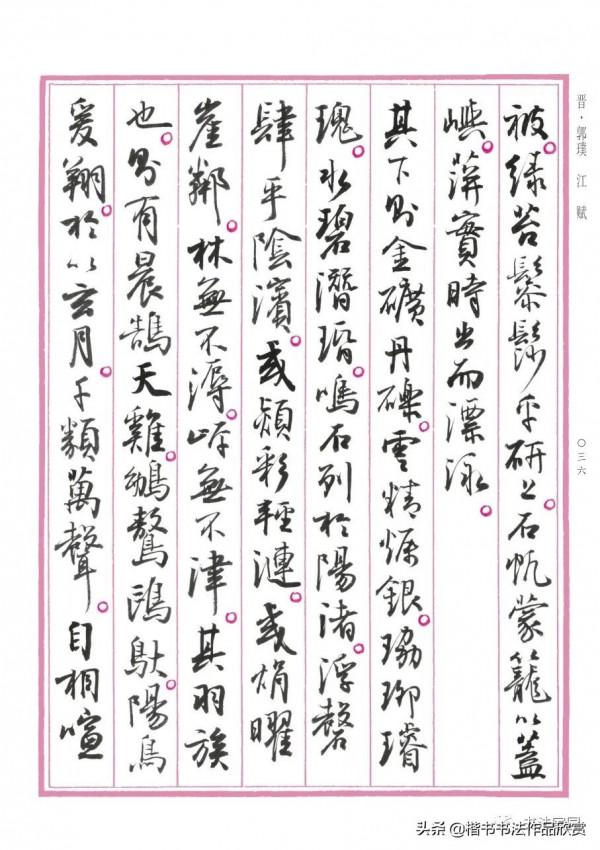 晋·郭璞 江赋
〇三六
被。綠苔鬖髿乎研上。石帆蒙籠以蓋
嶼。蓱實時出而漂泳。
其下則金礦丹礫。雲精爥銀。珕珋璿
瑰。水碧潛琘。鳴石列於陽渚。浮磬
肆乎陰濱。或熲彩輕漣。或焆曜
崖鄰。林無不溽。岸無不津。其羽族
也。則有晨鵠天雞。鴢鷔鷗䳁。陽鳥
爰翔。於以玄月。千類萬聲。自相喧
头条 @楷书书法作品欣赏